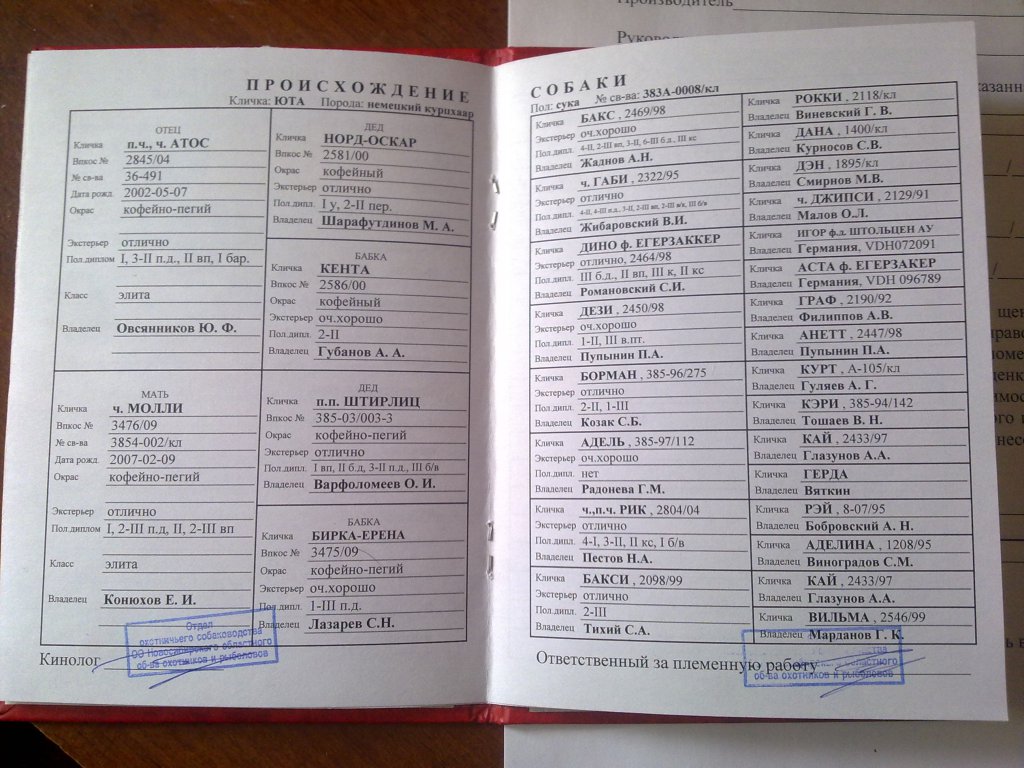 Производитель
ПРОИСХОЖДЕНИЕ
Кличка: ЮТА Порода: немецкий курцхаар
ОТЕЦ
Кличка п.ч., ч. АТОС
Впкос № 2845/04
№ св-ва 36-491
Дата рожд. 2002-05-07
Окрас кофейно-пегий
Экстерьер отлично
Пол.диплом I, 3-II п.д., II вп, I бар.
Класс элита
Владелец Овсянников Ю. Ф.
МАТЬ
Кличка ч. МОЛЛИ
Впкос № 3476/09
№ св-ва 3854-002/кл
Дата рожд. 2007-02-09
Окрас кофейно-пегий
Экстерьер отлично
Пол.диплом I, 2-III п.д, II, 2-III вп
Класс элита
Владелец Конюхов Е. И.
ДЕД
Кличка НОРД-ОСКАР
Впкос № 2581/00
Окрас кофейный
Экстерьер отлично
Пол.дипл. I у, 2-II пер.
Владелец Шарафутдинов М. А.
БАБКА
Кличка КЕНТА
Впкос № 2586/00
Окрас кофейный
Экстерьер оч.хорошо
Пол.дипл. 2-II
Владелец Губанов А. А.
ДЕД
Кличка п.п. ШТИРЛИЦ
Впкос № 385-03/003-3
Окрас кофейно-пегий
Экстерьер отлично
Пол.дипл. I вп, II б.д, 3-II п.д., III б/в
Владелец Варфоломеев О. И.
БАБКА
Кличка БИРКА-ЕРЕНА
Впкос № 3475/09
Окрас кофейно-пегий
Экстерьер оч.хорошо
Пол.дипл. 1-III п.д.
Владелец Лазарев С.Н.
Кинолог
Отдел
охотничьего собаководства
ОО Новосибирского областного
об-ва охотников и рыболовов
СОБАКИ
Пол: сука № св-ва: 383А-0008/кл
Кличка БАКС , 2469/98
Экстерьер оч.хорошо
Пол.дипл. 4-II, 2-III вп, 3-II, 6-III б.д., III кс
Владелец Жаднов А.Н.
Кличка ч. ГАБИ , 2322/95
Экстерьер отлично
Пол.дипл.
Владелец Жибаровский В.И.
Кличка ДИНО ф. ЕГЕРЗАККЕР
Экстерьер отлично, 2464/98
Пол.дипл. III б.д., II вп, III к, II кс
Владелец Романовский С.И.
Кличка ДЕЗИ , 2450/98
Экстерьер оч.хорошо
Пол.дипл. 1-II, III в.пт.
Владелец Пупынин П.А.
Кличка БОРМАН , 385-96/275
Экстерьер отлично
Пол.дипл. 2-II, 1-III
Владелец Козак С.Б.
Кличка АДЕЛЬ , 385-97/112
Экстерьер оч.хорошо
Пол.дипл. нет
Владелец Радонева Г.М.
Кличка ч.,п.ч. РИК , 2804/04
Экстерьер отлично
Пол.дипл. 4-I, 3-II, II кс, I б/в
Владелец Пестов Н.А.
Кличка БАКСИ , 2098/99
Экстерьер отлично
Пол.дипл. 2-III
Владелец Тихий С.А.
Кличка РОККИ , 2118/кл
Владелец Виневский Г. В.
Кличка ДАНА , 1400/кл
Владелец Курносов С.В.
Кличка ДЭН , 1895/кл
Владелец Смирнов М.В.
Кличка ч. ДЖИПСИ , 2129/91
Владелец Малов О.Л.
Кличка ИГОР ф.д. ШТОЛЬЦЕН АУ
Владелец Германия, VDH072091
Кличка АСТА ф. ЕГЕРЗАКЕР
Владелец Германия, VDH 096789
Кличка ГРАФ , 2190/92
Владелец Филиппов А.В.
Кличка АНЕТТ , 2447/98
Владелец Пупынин П.А.
Кличка КУРТ , А-105/кл
Владелец Гуляев А. Г.
Кличка КЭРИ , 385-94/142
Владелец Тошаев В. Н.
Кличка КАЙ , 2433/97
Владелец Глазунов А.А.
Кличка ГЕРДА
Владелец Вяткин
Кличка РЭЙ , 8-07/95
Владелец Бобровский А. Н.
Кличка АДЕЛИНА , 1208/95
Владелец Виноградов С.М.
Кличка КАЙ , 2433/97
Владелец Глазунов А.А.
Кличка ВИЛЬМА , 2546/99
Владелец Марданов Г. К.
Ответственный за племенную работу
об-ва охотников и рыболовов